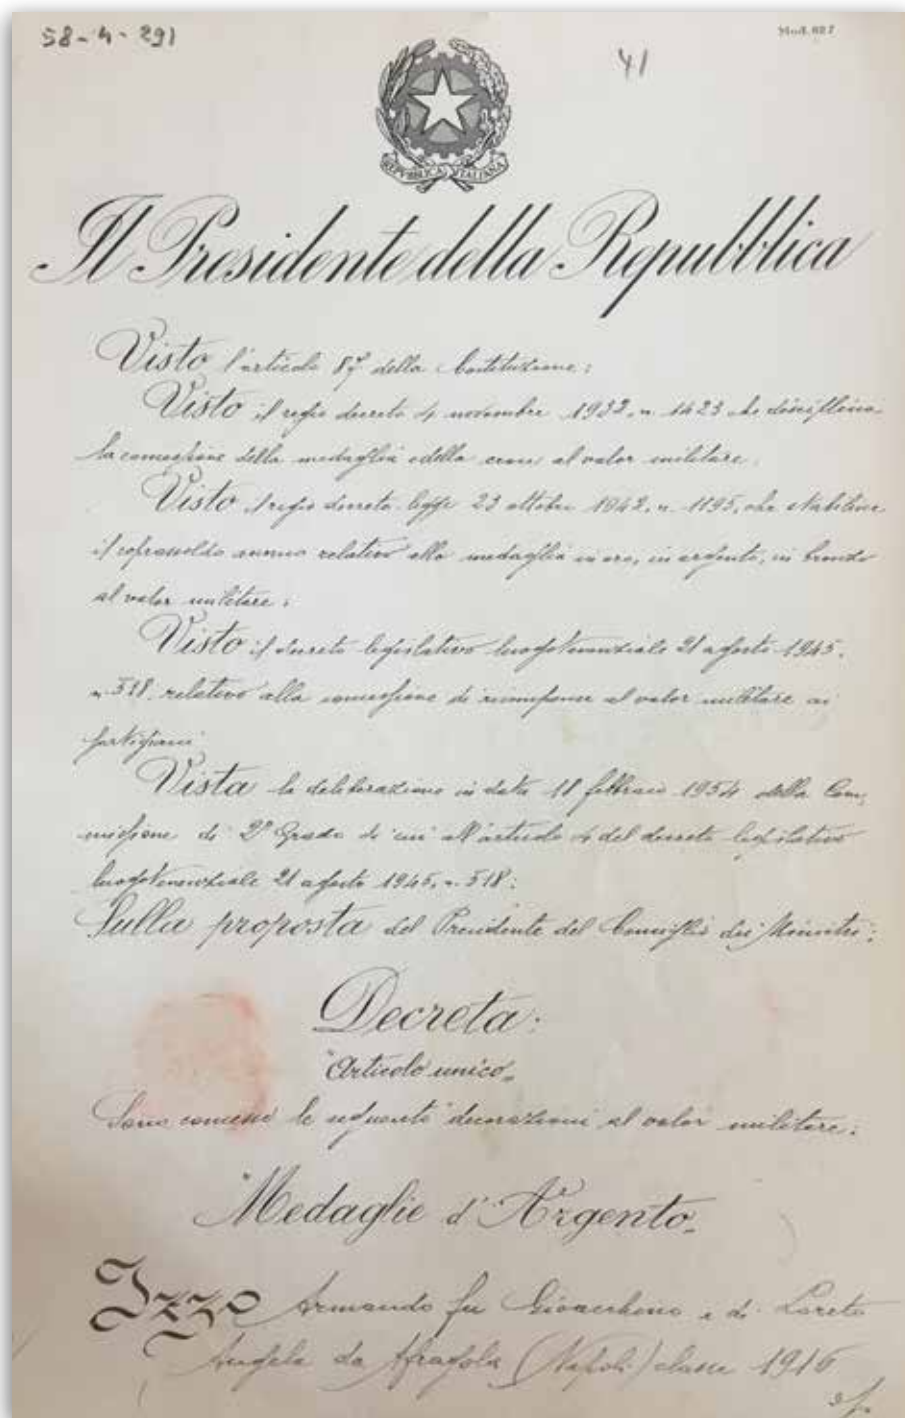 58-4-291
Mod. 827
41
REPVBBLICA ITALIANA
Il Presidente della Repubblica
Visto l'articolo 87 della Costituzione;
Visto il regio decreto 4 novembre 1932, n. 1423 che disciplina
la concessione della medaglia e della croce al valor militare;
Visto il regio decreto legge 23 ottobre 1942, n. 1195, che stabilisce
il soprassoldo annuo relativo alle medaglie in oro, in argento, in bronzo
al valor militare;
Visto il decreto legislativo luogotenenziale 21 agosto 1945,
n. 518, relativo alla concessione di ricompense al valor militare ai
partigiani
Vista la deliberazione in data 18 febbraio 1954 della Com,
missione di 2° Grado di cui all'articolo 4 del decreto legislativo
luogotenenziale 21 agosto 1945, n. 518;
Sulla proposta del Presidente del Consiglio dei Ministri;
Decreta:
"Articolo unico"
Sono concesse le seguenti decorazioni al valor militare:
"Medaglie d'Argento"
Izzo Armando fu Gioacchino e di Loreto
Angela da Afragola (Napoli) classe 1916